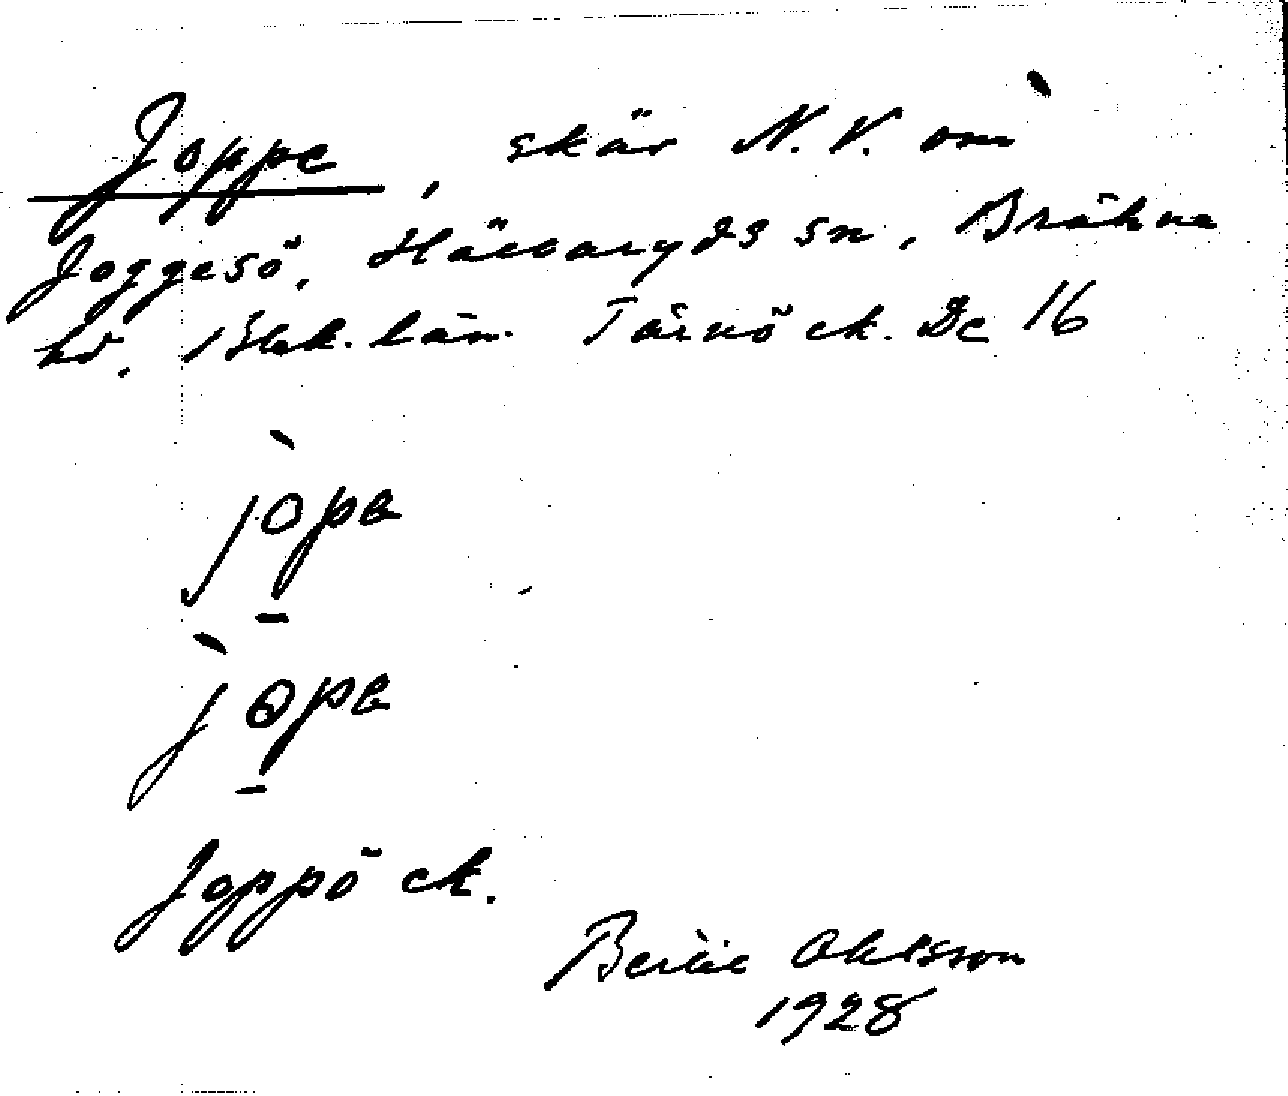 Joppe, skär N.V. om
Joggesö, Hällaryds sn, Bräkne
hd. Blek. län. Tärnö ek. Dc 16
jòpe
jòpe
Joppö ek.
Bertil Ohlsson
1928